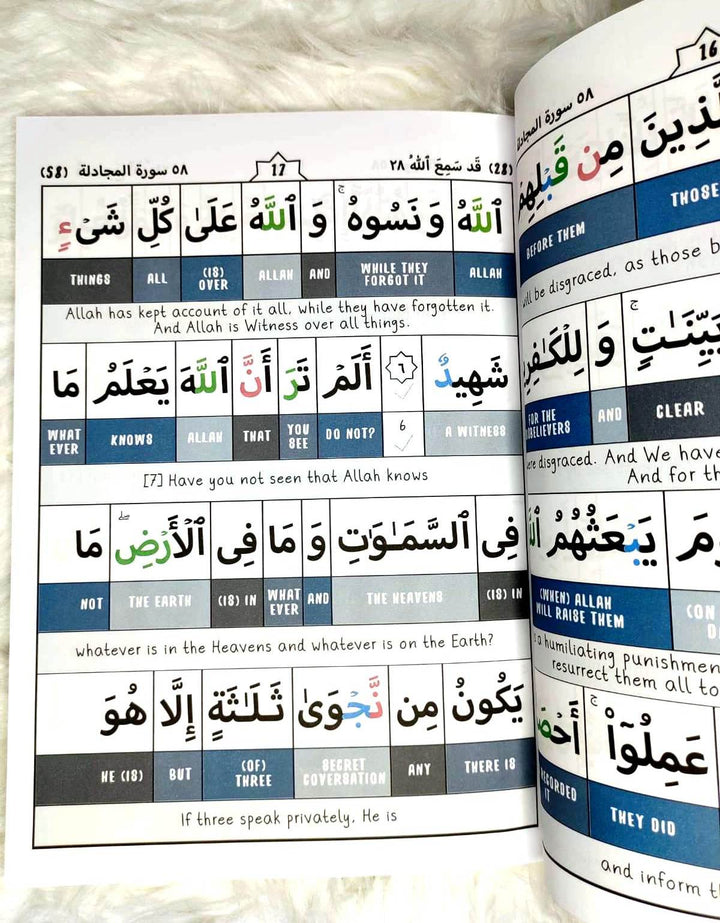 16
٥٨ سورة المجادلة
مِن قَبْلِهِمْ
THOSE BEFORE THEM
be disgraced, as those
بَيِّنَـٰتٍ ۚ وَ
CLEAR AND FOR THE
were disgraced. And We have
And for
يَبْعَثُهُمُ
(WHEN) ALLAH WILL RAISE THEM
a humiliating
resurrect them all to
عَمِلُوٓا۟ ۚ
THEY DID IT
and inform
(28) قَد سَمِعَ ٱللَّهُ ٢٨
17
٥٨ سورة المجادلة (58)
ٱللَّهُ وَ نَسُوهُ ۚ وَ ٱللَّهُ عَلَىٰ كُلِّ شَىْءٍ
ALLAH WHILE THEY FORGOT IT AND ALLAH (IS) OVER ALL THINGS
Allah has kept account of it all, while they have forgotten it.
And Allah is Witness over all things.
شَهِيدٌ ٦ أَلَمْ تَرَ أَنَّ ٱللَّهَ يَعْلَمُ مَا
A WITNESS 6 DO NOT? YOU SEE THAT ALLAH KNOWS WHAT EVER
[7] Have you not seen that Allah knows
فِى ٱلسَّمَـٰوَٰتِ وَ مَا فِى ٱلْأَرْضِ ۖ مَا
(IS) IN THE HEAVENS AND WHAT EVER (IS) IN THE EARTH NOT
whatever is in the Heavens and whatever is on the Earth?
يَكُونُ مِن نَّجْوَىٰ ثَلَـٰثَةٍ إِلَّا هُوَ
THERE IS ANY SECRET COVERSATION (OF) THREE BUT HE (IS)
If three speak privately, He is